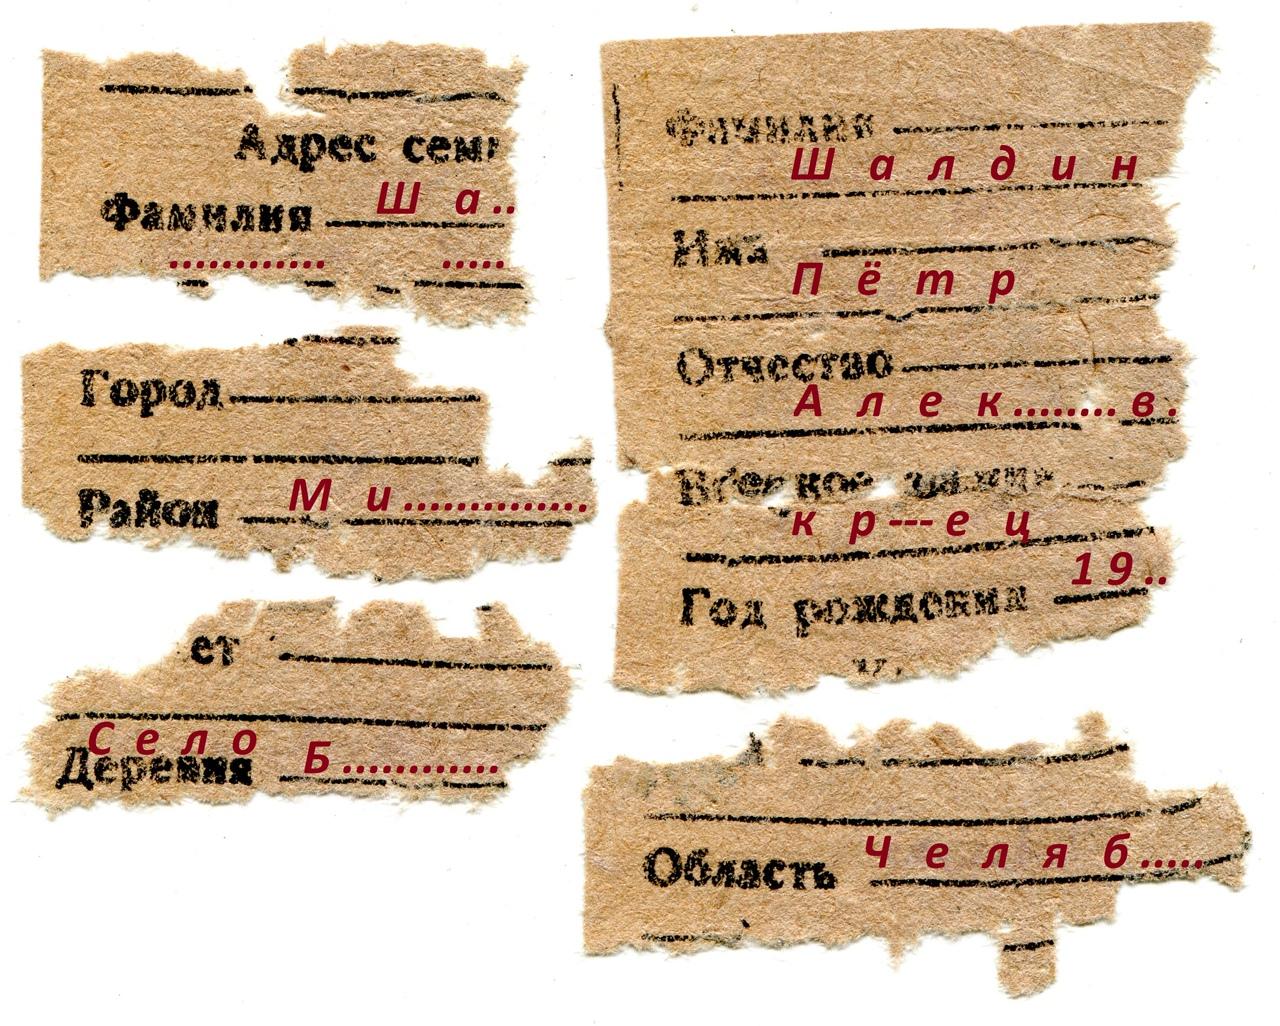 Адрес сем
Фамилия Ша..
............ .....
Город
Район Ми..............
ет
Село
Деревня Б............
Фамилия
Шалдин
Имя
Пётр
Отчество
Алек........в.
кр---ец
Год рождения 19..
Область Челяб.....